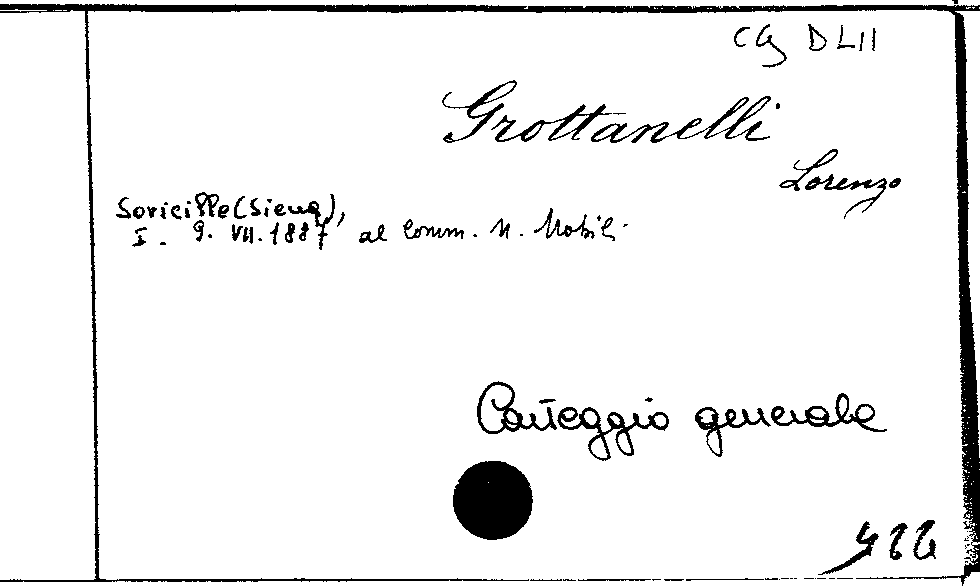 CG DLII
Grottanelli
Lorenzo
Soricille (Siena),
I. 9. VII. 1887, al Comm. N. Nobili
Carteggio generale